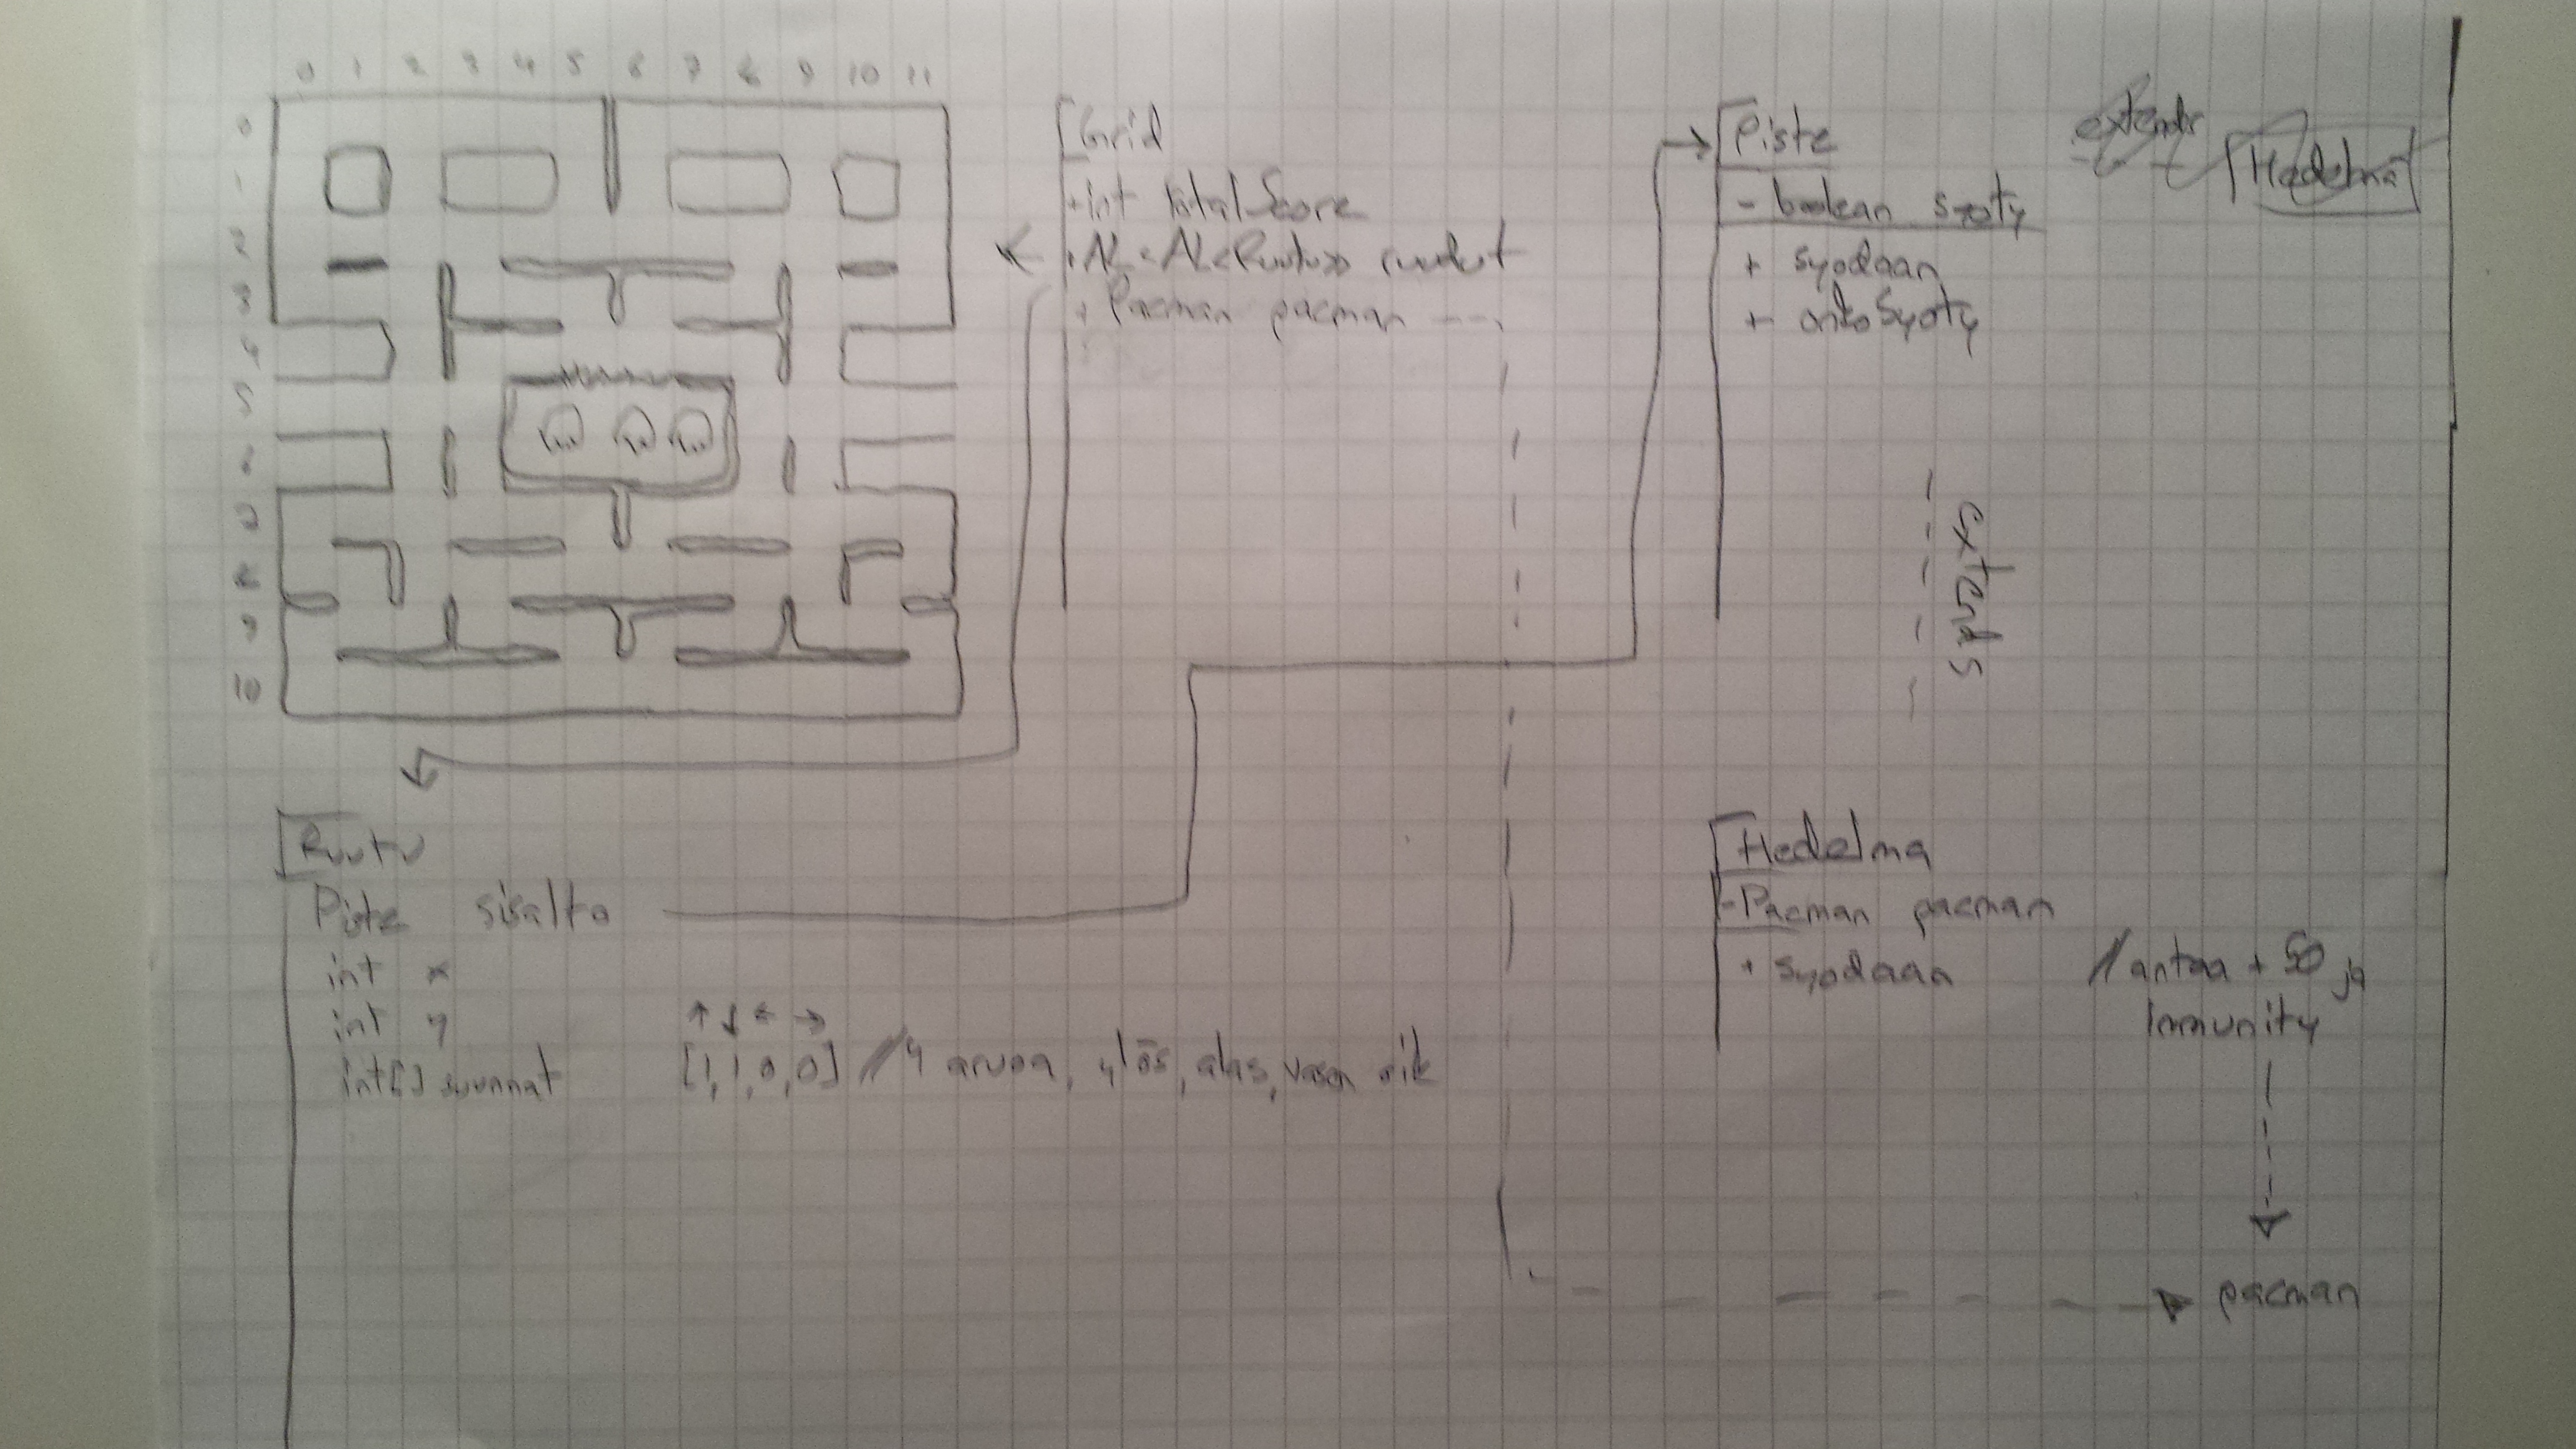 0 1 2 3 4 5 6 7 8 9 10 11
0
1
2
3
4
5
6
7
8
9
10
Grid
+ int totalScore
+ AL<AL<Ruutu>> ruudut
+ Pacman pacman
Piste
- boolean syoty
+ syodaan
+ onkoSyoty
extends
Hedelma
extends
Ruutu
Piste sisalto
int x
int y
int[] suunnat
↑ ↓ ← →
[1,1,0,0] // 4 arvoa, ylös, alas, vasen oik
Hedelma
- Pacman pacman
+ syodaan
// antaa + 50 ja
Immunity
pacman